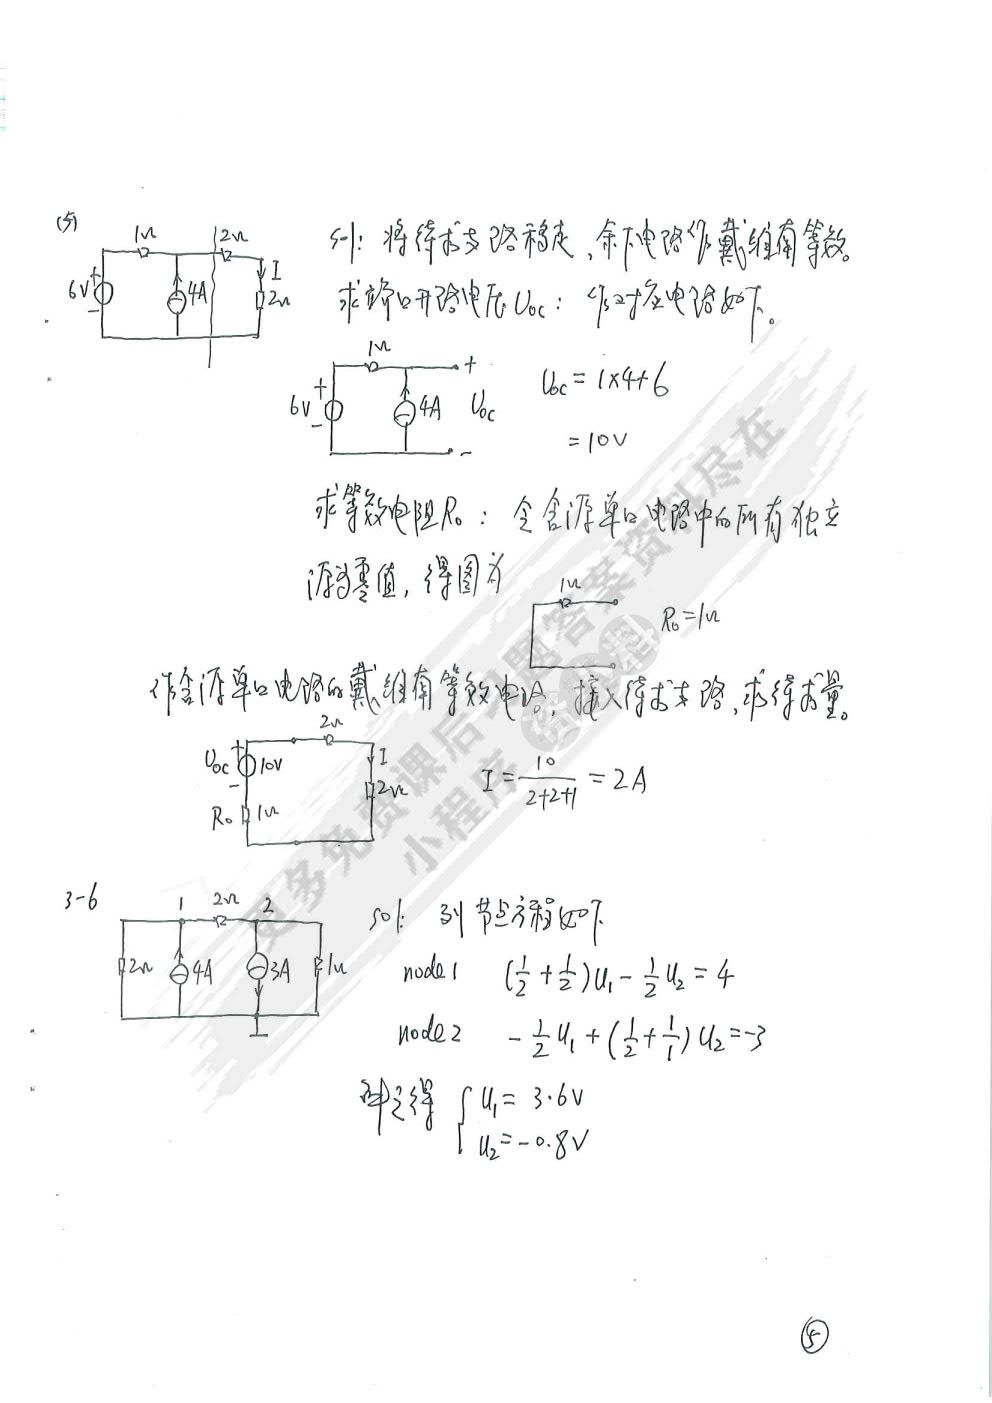 (5)
1Ω 2Ω
6V + - 4A I 2Ω
sol: 将待求支路移走,余下电路作戴维南等效。
求端口开路电压Uoc: 作对应电路如下。
1Ω
6V + - 4A + Uoc -
Uoc = 1×4+6
= 10V
求等效电阻R₀: 令含源单口电路中的所有独立
源为零值,得图为
1Ω
R₀=1Ω
作含源单口电路的戴维南等效电路,接入待求支路,求待求量。
2Ω
Uoc + - 10V I 2Ω
R₀ 1Ω
I = 10/(2+2+1) = 2A
3-6
1 2Ω 2
2Ω 4A 3A 1Ω
sol: 列节点方程如下
node1 (1/2 + 1/2)U₁ - 1/2 U₂ = 4
node2 - 1/2 U₁ + (1/2 + 1/1) U₂ = -3
解之得 { U₁ = 3.6V
U₂ = -0.8V
更多免费课后习题答案资料尽在
小程序
⑤